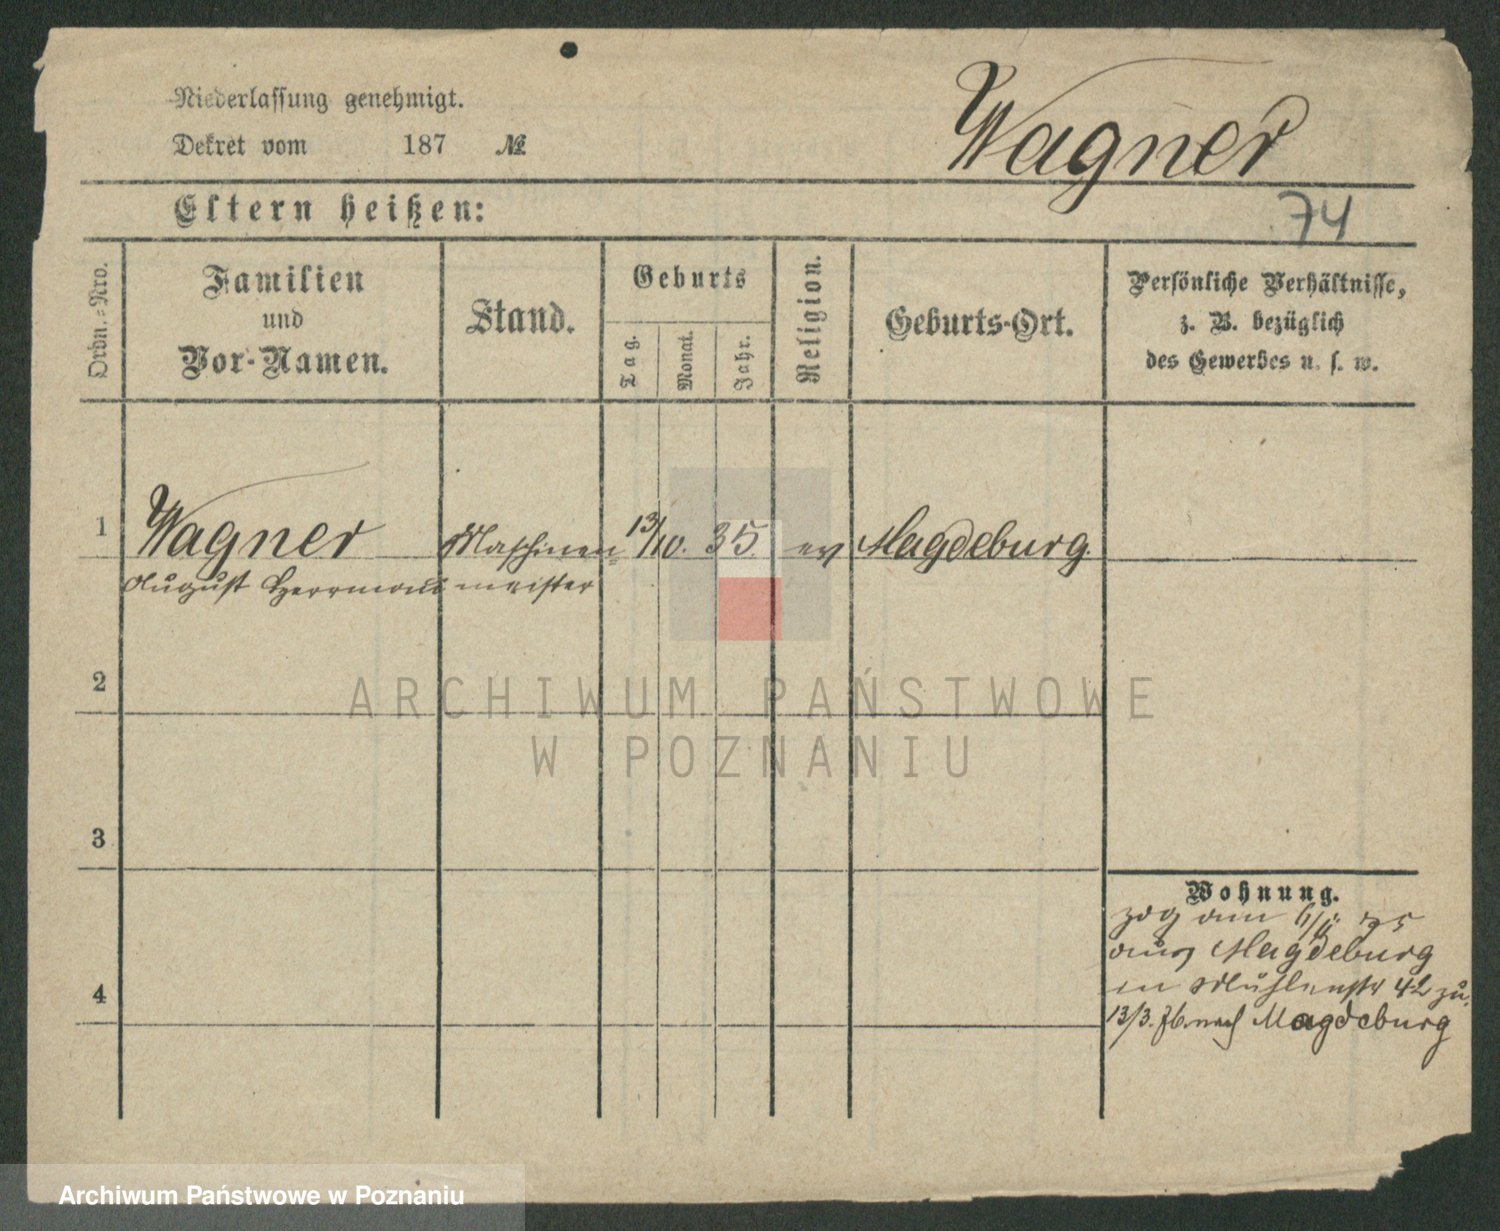 Niederlassung genehmigt.
Dekret vom 187 №
Wagner
Eltern heißen:
74
Ordn.-Nro.
Familien
und
Vor-Namen.
Stand.
Geburts
Tag.
Monat.
Jahr.
Religion.
Geburts-Ort.
Persönliche Verhältnisse,
z. B. bezüglich
des Gewerbes u. s. w.
1 Wagner Maschinen= 13/10. 35. ev Magdeburg.
August Herrmann meister
2
ARCHIWUM PAŃSTWOWE
W POZNANIU
3
Wohnung.
zog am 75
aus Magdeburg
in Mühlenstr 42 zu.
4
13/3. 76. nach Magdeburg
Archiwum Państwowe w Poznaniu